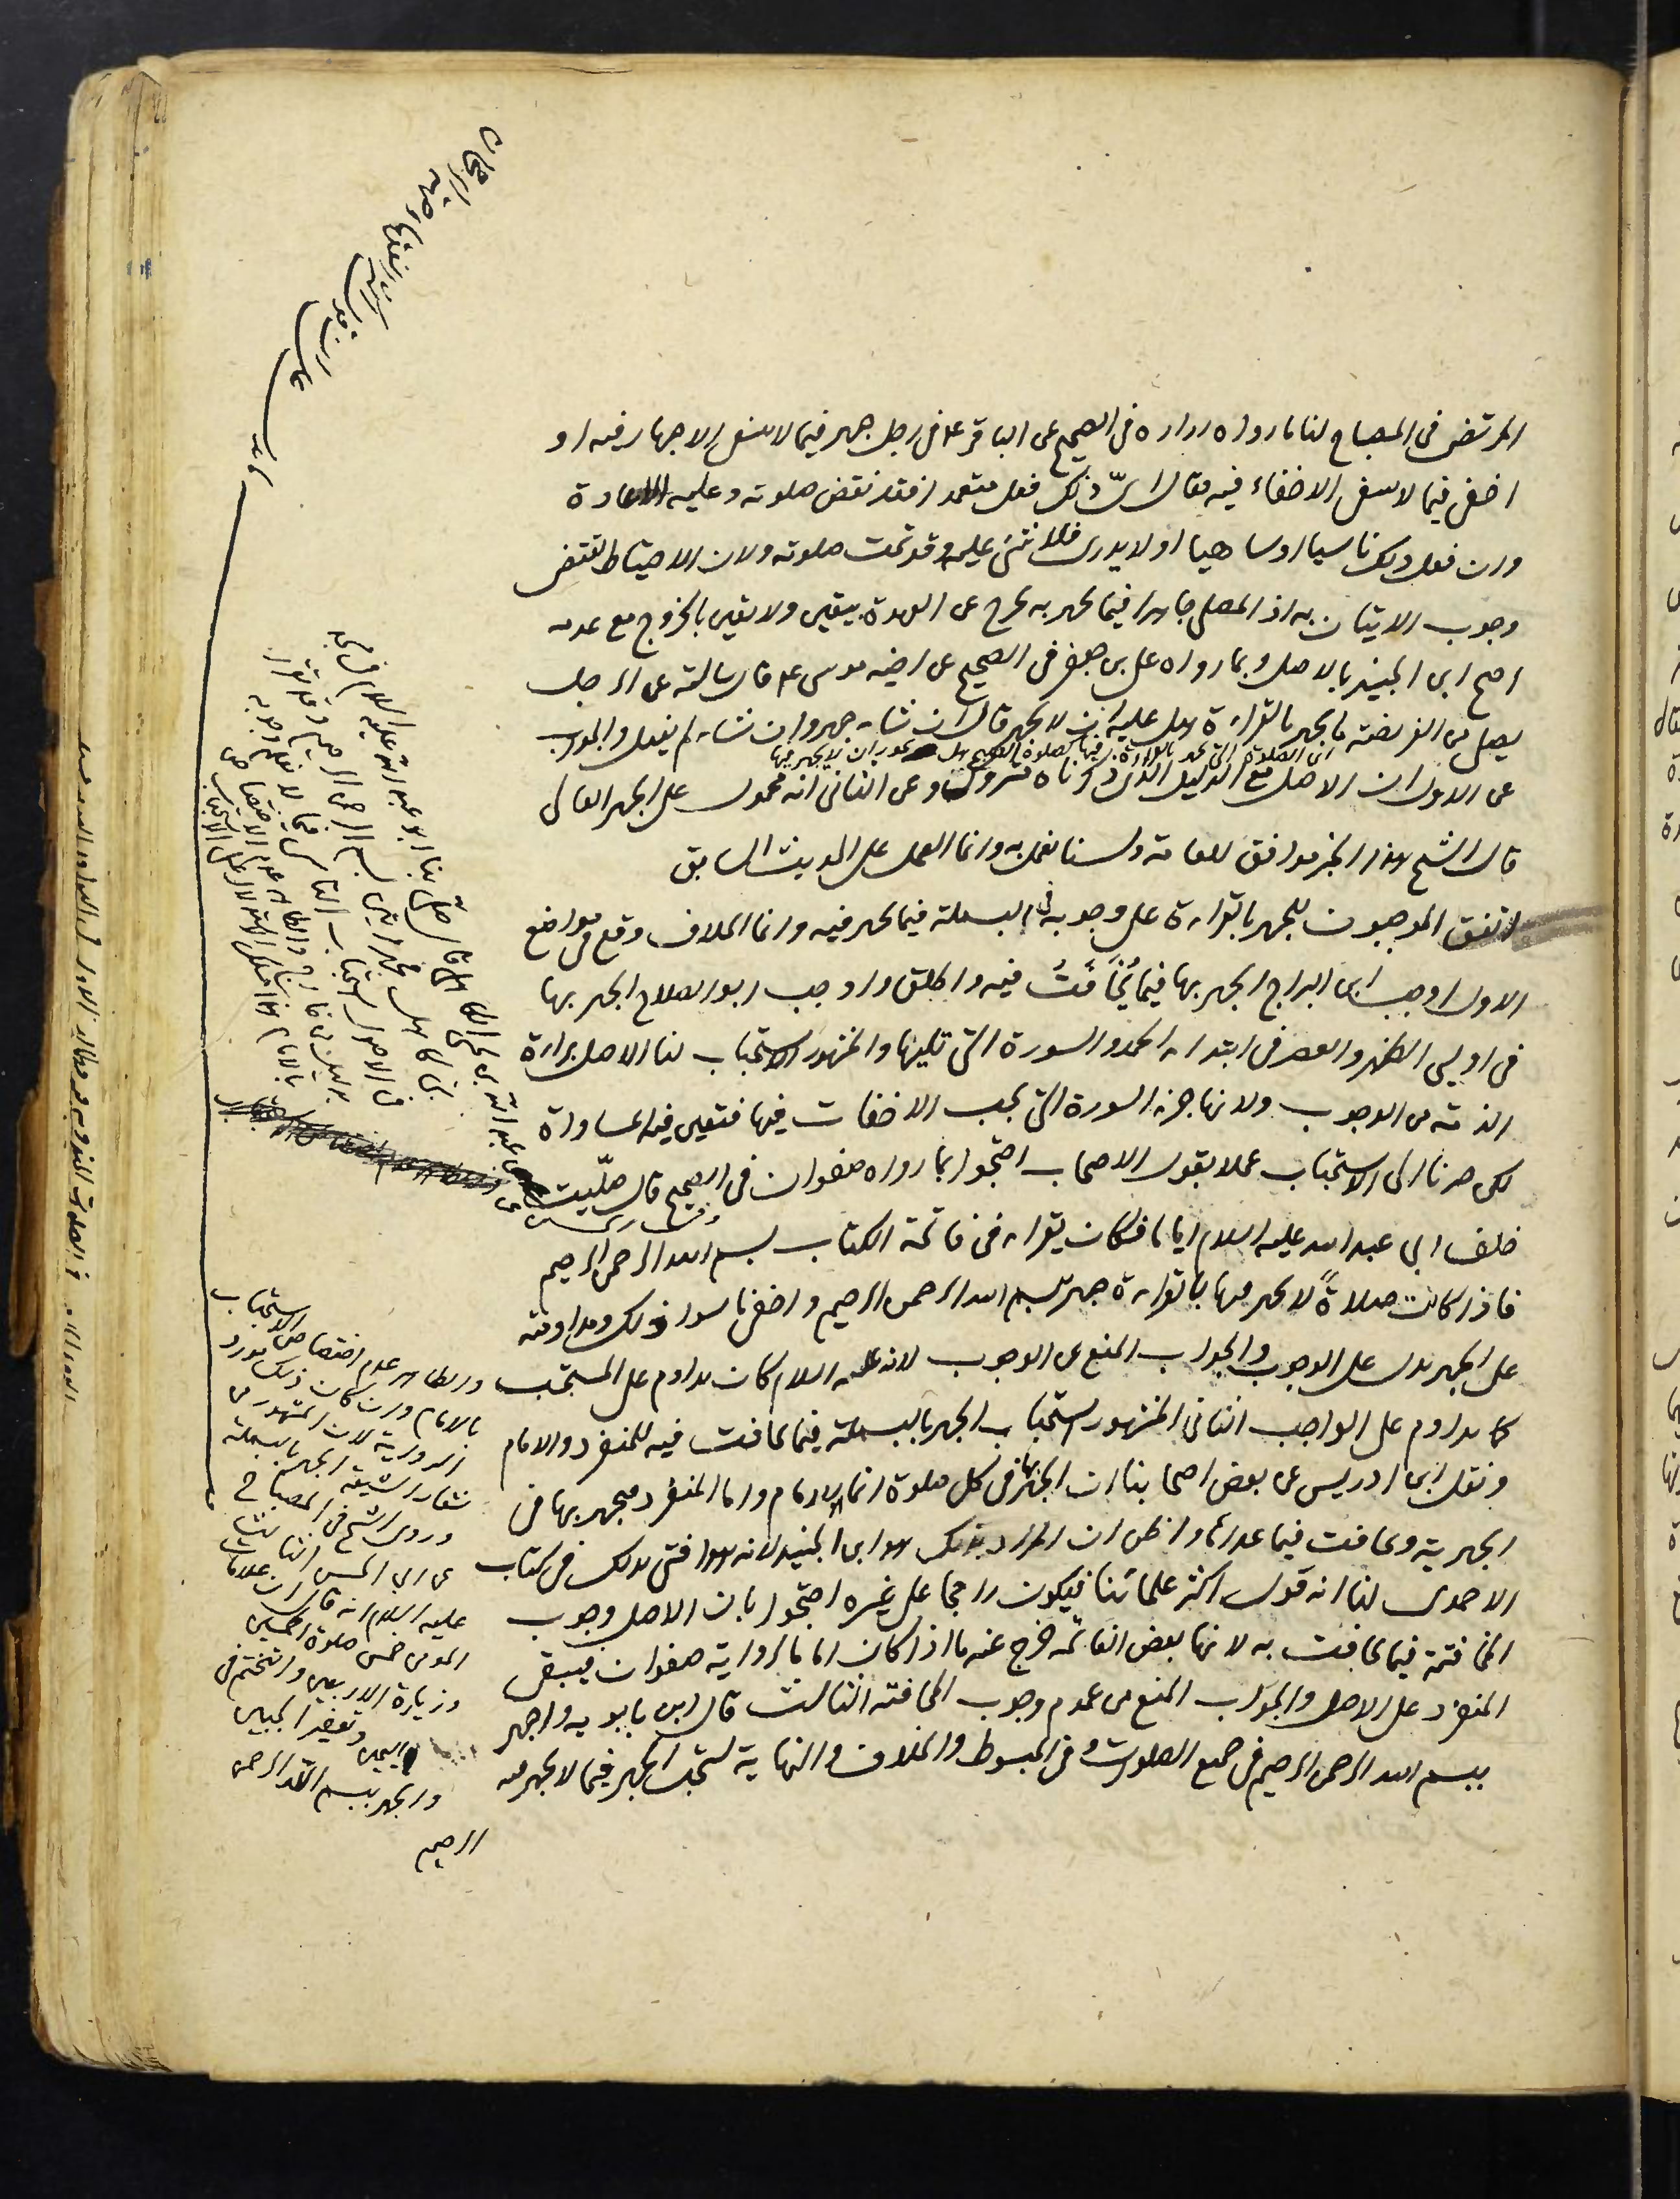 المرتضى فى المصباح لنا ما رواه زراره فى الصحيح عن الباقر ع فى رجل جهر فيما لا ينبغى الاجهار فيه او
اخفى فيما لا ينبغى الاخفاء فيه فقال اىّ ذلك فعل متعمدا فقد نقض صلوته وعليه الاعادة
وان فعل ذلك ناسيا او ساهيا او لا يدرى فلا شئ عليه وقد تمت صلوته ولان الاحتياط يقتضى
وجوب الاتيان به اذ المصلى جاهرا فيما يجهر به يخرج عن العهدة بيقين ولا يقين بالخروج مع عدمه
احتج ابن الجنيد بالاصل وبما رواه على بن جعفر فى الصحيح عن اخيه موسى ع قال سالته عن الرجل
يصلى من الفريضة ما يجهر بالقراءة هل عليه ان لا يجهر قال ان شاء جهر وان شاء لم يفعل والجواب
اى الصلوة التى يجهر بالقراءة فيها كصلوة الصبح هل يجوز ان لا يجهر فيها
عن الاول ان الاصل مع الدليل الذى ذكرناه متروك وعن الثانى انه محمول على الجهر العالى
قال الشيخ هذا الخبر موافق للعامة ولسنا نعمل به وانما العمل على الحديث السابق
اتفق الموجبون للجهر بالقراءة على وجوبه فى البسملة فيما يجهر فيه وانما الخلاف وقع فى مواضع
الاول اوجب ابن البراج الجهر بها فيما يُخَافَتُ فيه واطلق واوجب ابو الصلاح الجهر بها
فى اوليى الظهر والعصر فى ابتداء الحمد والسورة التى تليها والمشهور الاستحباب لنا الاصل براءة
الذمة من الوجوب ولانها جزء السورة التى يجب الاخفات فيها فتعين فيها مساواة
لكن صرنا الى الاستحباب عملا بقول الاصحاب احتجوا بما رواه صفوان فى الصحيح قال صلّيت
خلف ابى عبد الله عليه السلام اياما فكان يقراء فى فاتحة الكتاب بسم الله الرحمن الرحيم
فاذا كانت صلاةً لا يجهر فيها بالقراءة جهر ببسم الله الرحمن الرحيم واخفى ما سوا ذلك ومداومته
على الجهر يدل على الوجوب والجواب المنع من الوجوب لانه عليه السلام كان يداوم على المستحب
كما يداوم على الواجب الثانى المشهور استحباب الجهر بالبسملة فيما يخافت فيه للمنفرد والامام
ونقل ابن ادريس عن بعض اصحابنا ان الجهر بها فى كل صلوة انما هو للامام واما المنفرد فيجهر بها فى
الجهرية ويخافت فيما عداها واظن ان المراد بذلك هو ابن الجنيد لانه افتى بذلك فى كتاب
الاحمدى لنا انه قول اكثر علمائنا فيكون راجحا على غيره احتجوا بان الاصل وجوب
المخافتة فيما يخافت به لانها بعض الفاتحة خرج عنه ما اذا كان اماما لرواية صفوان فيبقى
المنفرد على الاصل والجواب المنع من عموم وجوب المخافتة الثالث قال ابن بابويه واجهر
ببسم الله الرحمن الرحيم فى جميع الصلوات وفى المبسوط والخلاف والنهاية يستحب الجهر فيما لا يجهر فيه
والظاهر عدم اختصاص الاستحباب
بالامام وان كان ذلك مورد
الرواية لان المشهور من
شعار الشيعة الجهر بالبسملة
وروى الشيخ فى المصباح
عن ابى الحسن الثالث
عليه السلام انه قال ان علامات
المومن خمس صلوة الخمسين
وزيارة الاربعين والتختم فى
اليمين وتعفير الجبين
والجهر ببسم الله الرحمن
الرحيم